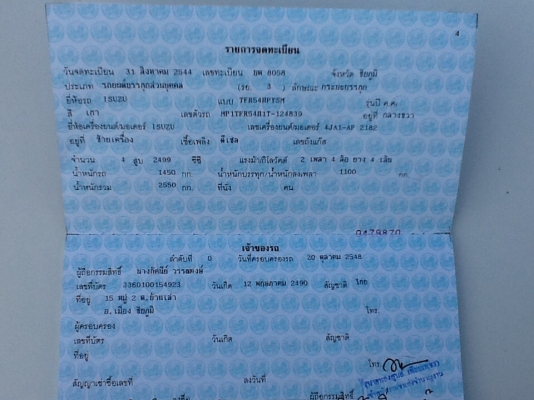 4
รายการจดทะเบียน
วันจดทะเบียน 31 สิงหาคม 2544 เลขทะเบียน 8058 จังหวัด ชัยภูมิ
ประเภท รถยนต์บรรทุกส่วนบุคคล (รย. 3 ) ลักษณะ กระบะบรรทุก
ยี่ห้อรถ ISUZU แบบ รุ่นปี ค.ศ.
สี เทา เลขตัวรถ อยู่ที่ กลางขวา
ยี่ห้อเครื่องยนต์/มอเตอร์ ISUZU เลขเครื่องยนต์/มอเตอร์ 4JA1-AP 2182
อยู่ที่ ซ้ายเครื่อง เชื้อเพลิง ดีเซล เลขถังแก๊ส
จำนวน 4 สูบ 2499 ซีซี แรงม้า/กิโลวัตต์ 2 เพลา 4 ล้อ ยาง 4 เส้น
น้ำหนักรถ 1450 กก. น้ำหนักบรรทุก/น้ำหนักลงเพลา 1100 กก.
น้ำหนักรวม 2550 กก. ที่นั่ง คน
เจ้าของรถ
ลำดับที่ 0 วันที่ครอบครองรถ 20 ตุลาคม 2548
ผู้ถือกรรมสิทธิ์
เลขที่บัตร 3360100154923 วันเกิด 12 พฤษภาคม 2490 สัญชาติ ไทย
ที่อยู่ 15 หมู่ 2
อ.เมือง ชัยภูมิ
ผู้ครอบครอง
เลขที่บัตร วันเกิด สัญชาติ
ที่อยู่
โทร.
สัญญาเช่าซื้อเลขที่ ลงวันที่
ผู้ถือกรรมสิทธิ์